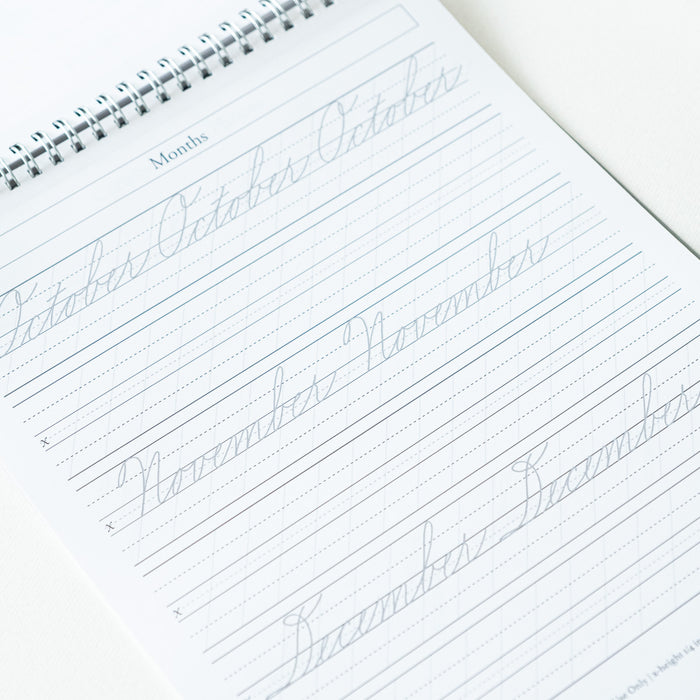 Months
October October October
x
November November
x
December December
x
Use Only | x-height